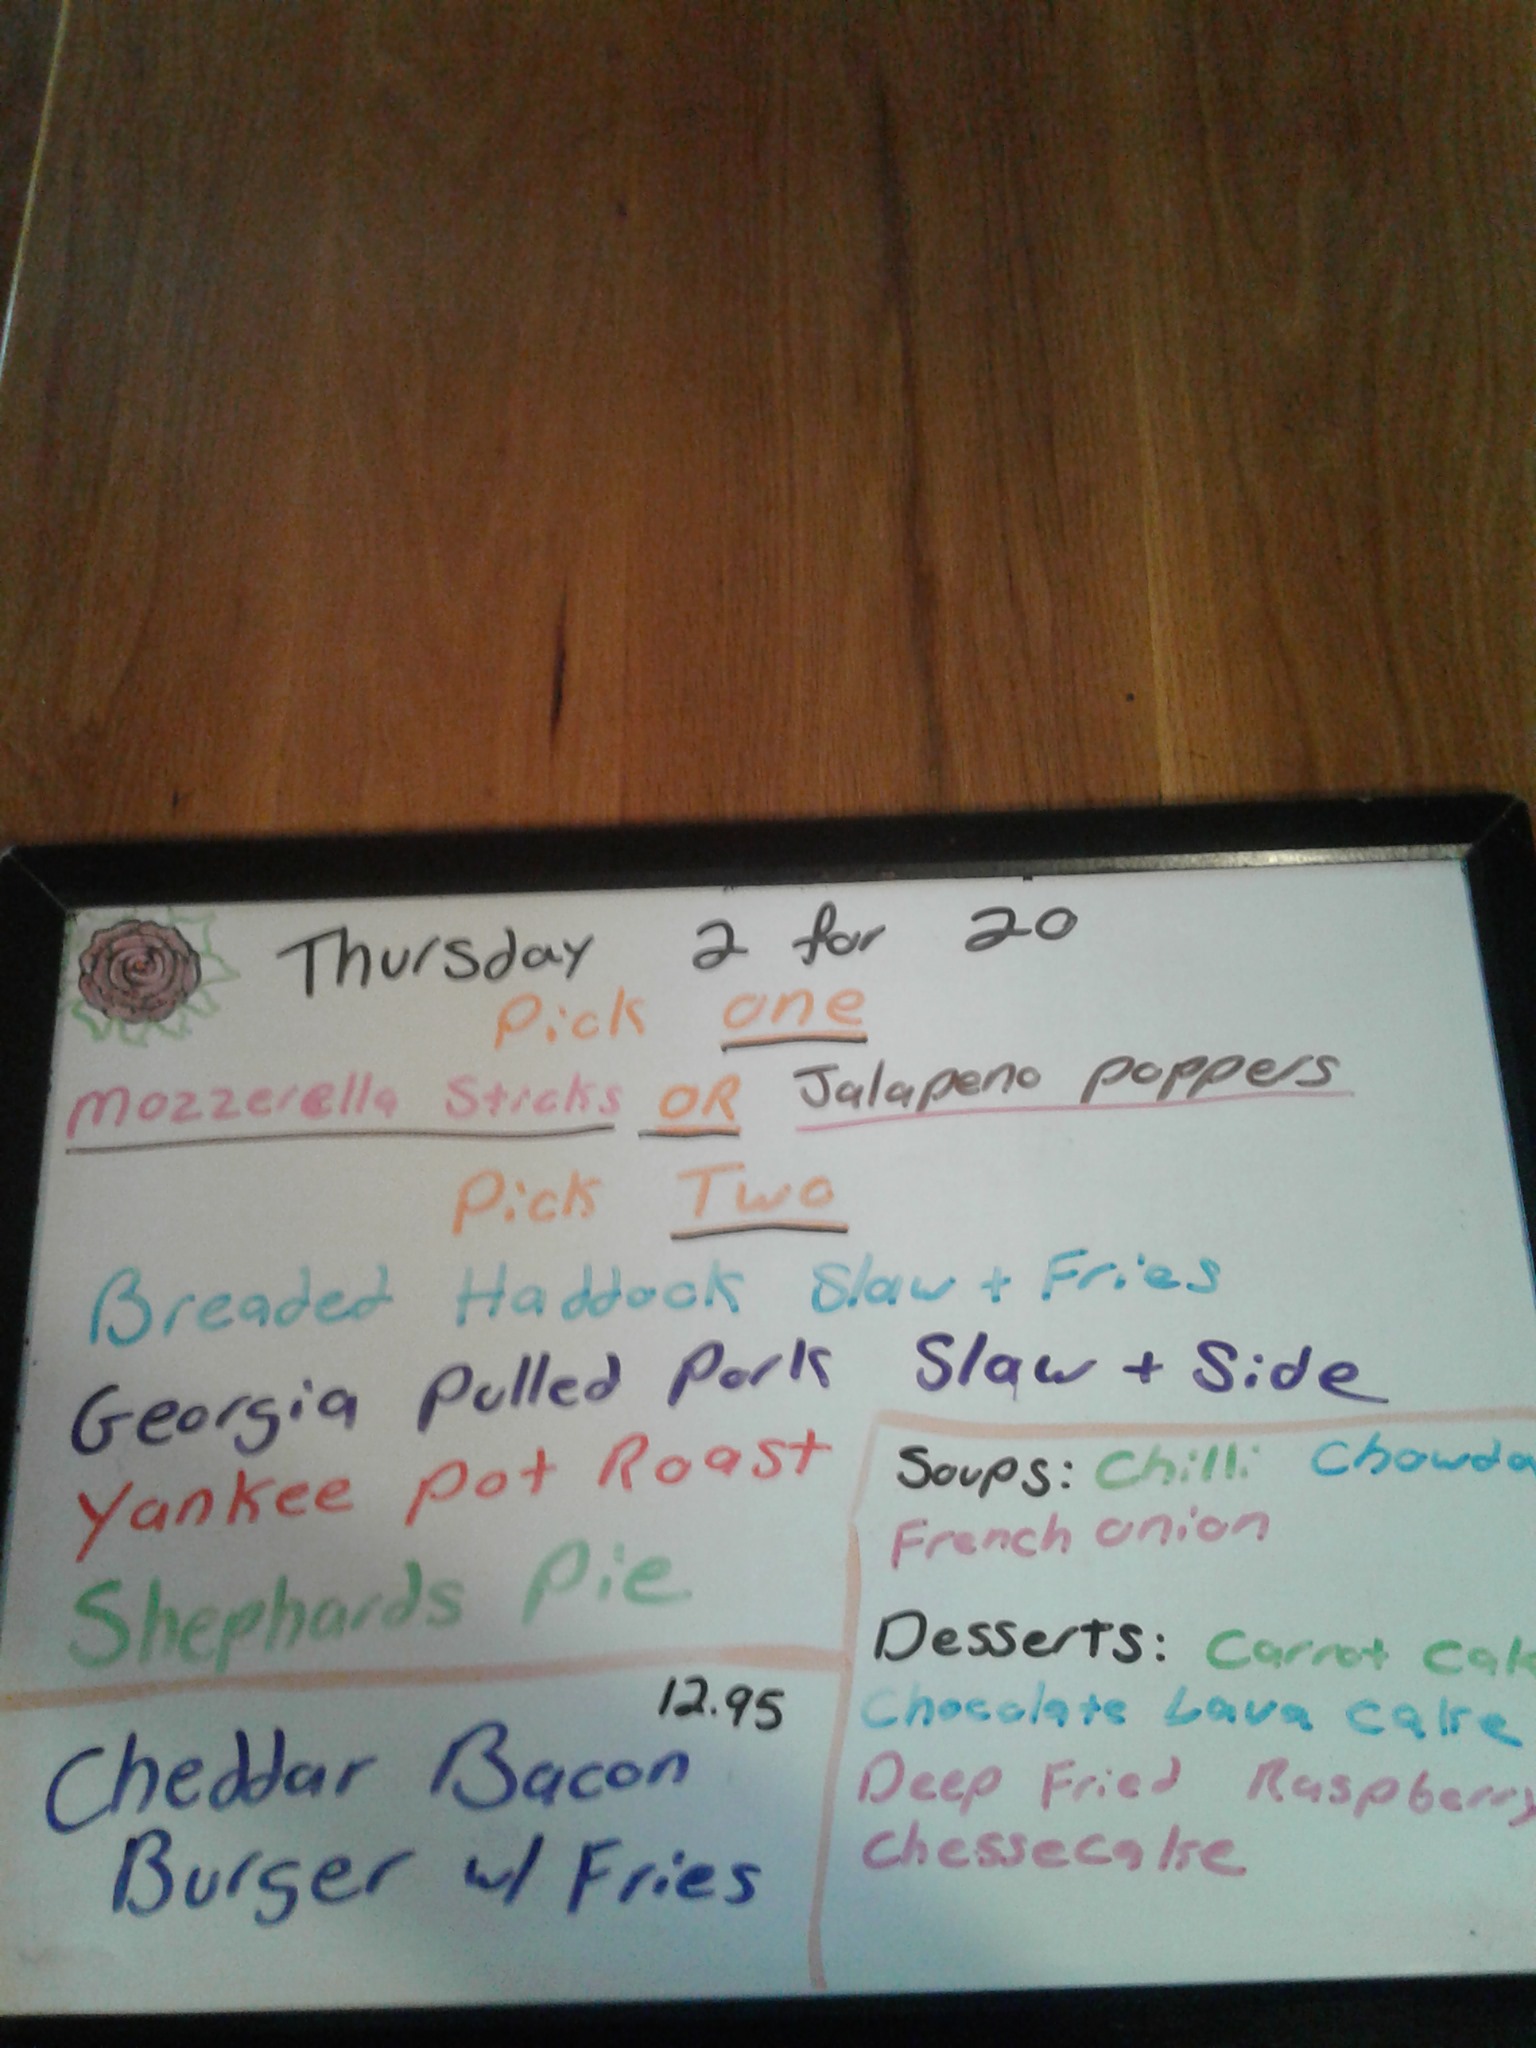 Thursday 2 for 20
Pick one
Mozzerella Sticks OR Jalapeno poppers
Pick Two
Breaded Haddock Slaw + Fries
Georgia Pulled Pork Slaw + Side
Yankee Pot Roast
Shephards Pie
12.95
Cheddar Bacon
Burger w/ Fries
Soups: Chilli Chowda
French onion
Desserts: Carrot Cak
Chocolate Lava Cake
Deep Fried Raspberry
Chessecake